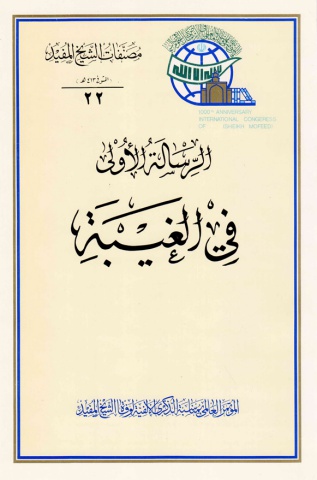 مصنفات الشيخ المفيد
(المتوفى ٤١٣ هـ)
٢٢
1000th ANNIVERSARY
INTERNATIONAL CONGRESS
OF SHEIKH MOFEED
الرسالة الأولى
في الغيبة
المؤتمر العالمي بمناسبة الذكرى الألفية لوفاة الشيخ المفيد